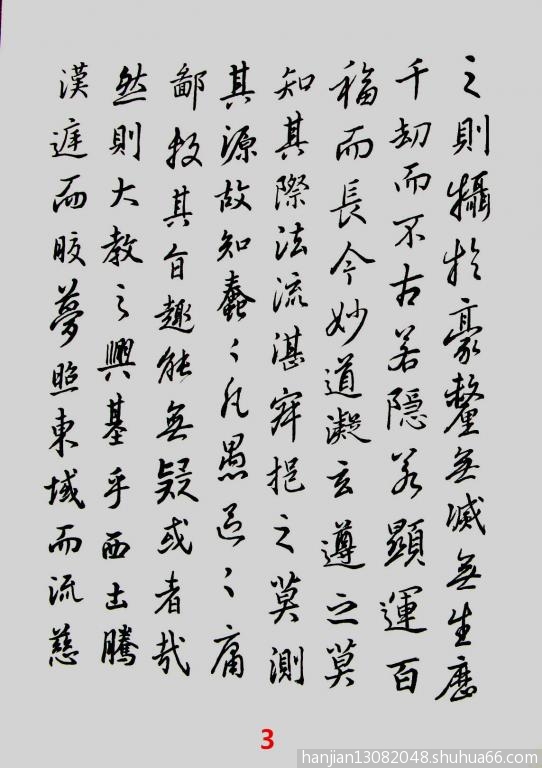 之則攝於豪釐無滅無生歷
千劫而不古若隱若顯運百
福而長今妙道凝玄遵之莫
知其際法流湛寂挹之莫測
其源故知蠢〻凡愚區〻庸
鄙投其旨趣能無疑或者哉
然則大教之興基乎西土騰
漢庭而皎夢照東域而流慈
3
hanjian13082048.shuhua66.com